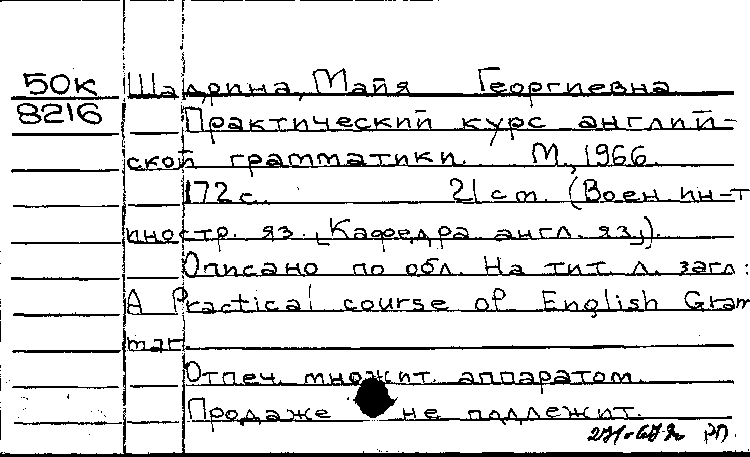 50К Шадрина, Майя Георгиевна
8216 Практический курс англий-
ской грамматики. М., 1966.
172 с. 21 ст. (Воен. ин-т
иностр. яз. [Кафедра англ. яз.]).
Описано по обл. На тит. л. загл.:
A Practical course of English Gram
mar.
Отпеч. множит. аппаратом.
Продаже не подлежит.